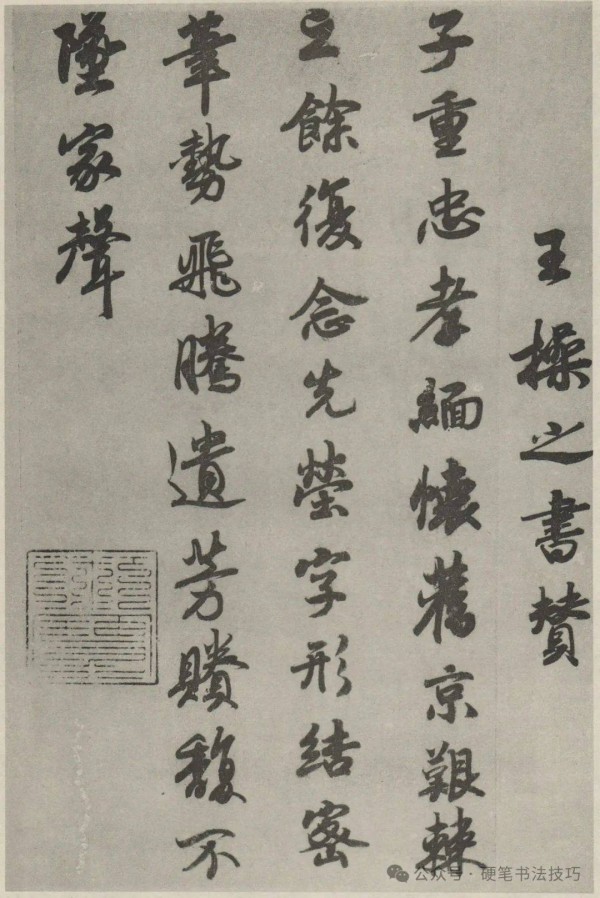 王操之書賛
子重忠孝緬懷舊京艱棘
之餘復念先塋字形結密
筆勢飛騰遺芳賸馥不
墜家聲
公众号 · 硬笔书法技巧